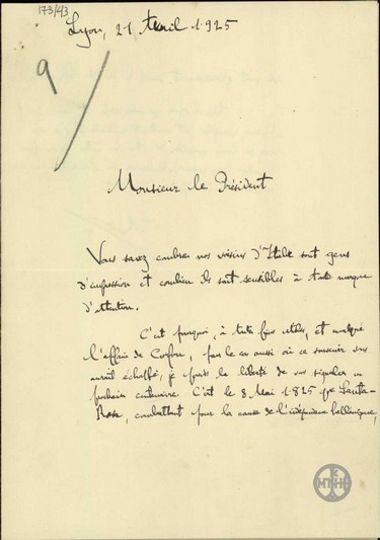 173/43
Lyon, 21 Avril 1925
9/
Monsieur le Président
Vous savez combien nos voisins d'Italie sont gens
d'impression et combien ils sont sensibles à toute marque
d'attention.
C'est pourquoi, à toute fins utiles, et malgré
l'affaire de Corfou, pour le cas aussi où ce souvenir vous
aurait échappé, je prends la liberté de vous signaler un
prochain centenaire. C'est le 8 Mai 1825 que Santa-
Rosa, combattant pour la cause de l'indépendance hellénique,